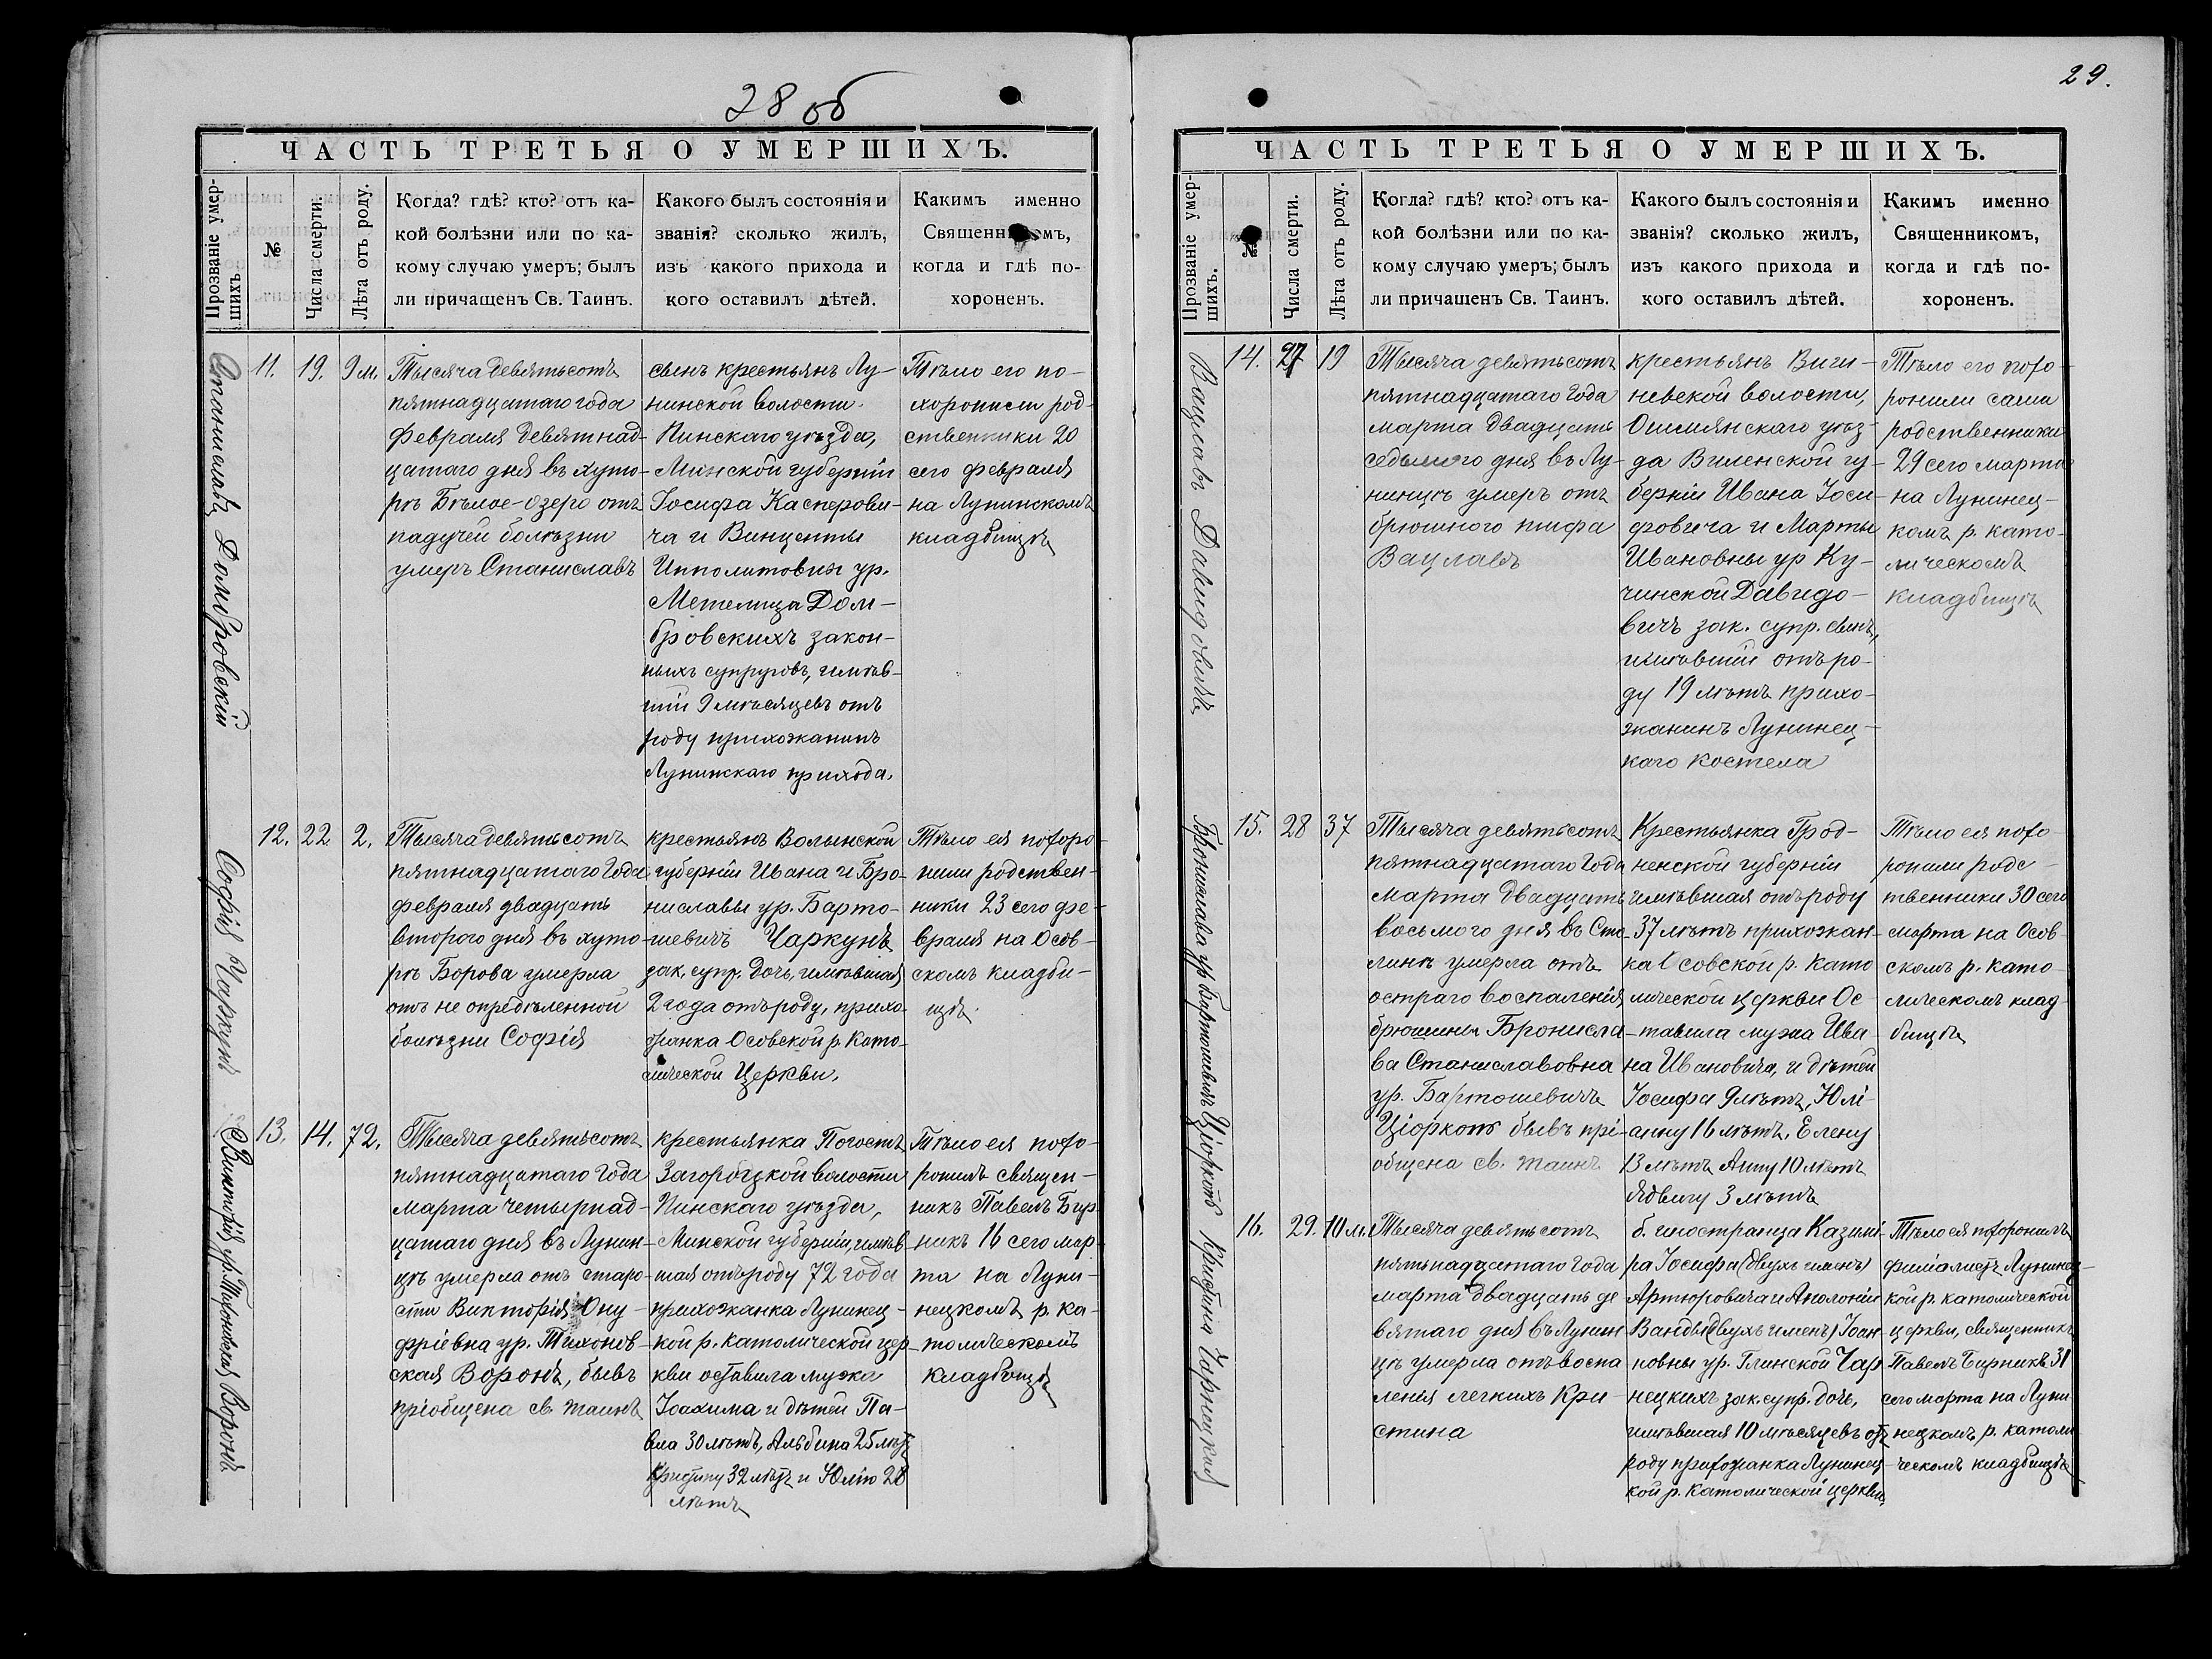 28 об
ЧАСТЬ ТРЕТЬЯ О УМЕРШИХЪ.
Прозваніе умер-
шихъ
№
Числа смерти.
Лѣта отъ роду.
Когда? гдѣ? кто? отъ ка-
кой болѣзни или по ка-
кому случаю умеръ; былъ
ли причащенъ Св. Таинъ.
Какого былъ состоянія и
званія? сколько жилъ,
изъ какого прихода и
кого оставилъ дѣтей.
Каким именно
Священникомъ,
когда и гдѣ по-
хороненъ.
Станиславъ Домбровскій
11.
19.
9 м.
Тысяча девятьсотъ
пятнадцатаго года
февраля девятнад-
цатаго дня въ хуто-
рѣ Бѣлое-Озеро отъ
падучей болѣзни
умеръ Станиславъ
сынъ крестьянъ Лу-
нинской волости
Пинскаго уѣзда,
Минской губерніи
Іосифа Касперови-
ча и Винценты
Ипполитовны ур.
Метелица Дом-
бровскихъ закон-
ныхъ супруговъ, имѣв-
шій 9 мѣсяцевъ отъ
роду прихожанинъ
Лунинскаго прихода.
Тѣло его по-
хоронили род-
ственники 20
сего февраля
на Лунинскомъ
кладбищѣ
Софія Чаркунъ
12.
22
2.
Тысяча девятьсотъ
пятнадцатаго Года
февраля двадцать
второго дня въ хуто-
рѣ Борова умерла
отъ не опредѣленной
болѣзни Софія
крестьянъ Волынской
губерніи Ивана и Бро-
ниславы ур. Барто-
шевичъ Чаркунъ
зак. супр. дочь, имѣвшая
2 года отъ роду, прихо-
жанка Осовской р. Като-
лической Церкви.
Тѣло ея похоро-
нили родствен-
ники 23 сего фе-
враля на Осов-
скомъ кладби-
щѣ.
Викторія ур. Тихоновская Воронъ
13.
14.
72.
Тысяча девятьсотъ
пятнадцатаго Года
марта четырнад-
цатаго дня въ Лунин-
цѣ умерла отъ старо-
сти Викторія Ону-
фріевна ур. Тихонов-
ская Воронъ, бывъ
пріобщена св. таинъ
крестьянка Погостъ
Загородзкой волости
Пинскаго уѣзда,
Минской губерніи, имѣв-
шая отъ роду 72 года
прихожанка Лунинец-
кой р. католической цер-
кви оставила мужа
Іоахима и дѣтей Па-
вла 30 лѣтъ, Альбина 25 лѣтъ
Кристину 32 лѣтъ и Юлію 28
лѣтъ
Тѣло ея похо-
ронилъ священ-
никъ Павелъ Бир-
никъ 16 сего мар-
та на Луни-
нецкомъ р. ка-
толическомъ
кладбищѣ
29.
ЧАСТЬ ТРЕТЬЯ О УМЕРШИХЪ.
Прозваніе умер-
шихъ.
№
Числа смерти.
Лѣта отъ роду.
Когда? гдѣ? кто? отъ ка-
кой болѣзни или по ка-
кому случаю умеръ; былъ
ли причащенъ Св. Таинъ.
Какого былъ состоянія и
званія? сколько жилъ,
изъ какого прихода и
кого оставилъ дѣтей.
Каким именно
Священникомъ,
когда и гдѣ по-
хороненъ.
Вацлавъ Давидовичъ
14.
27
19
Тысяча девятьсотъ
пятнадцатаго Года
марта двадцать
седьмого дня въ Лу-
нинцѣ умеръ отъ
брюшного тифа
Вацлавъ
крестьянъ Виги-
невской волости,
Ошмянскаго уѣз-
да Виленской гу-
берніи Ивана Іоси-
фовича и Марты
Ивановны ур Ку-
чинской Давидо-
вичъ зак. супр. сынъ,
имѣвшій отъ ро-
ду 19 лѣтъ прихо-
жанинъ Лунинец-
каго костела
Тѣло его похо-
ронили сами
родственники
29 сего марта
на Лунинец-
комъ р. като-
лическомъ
кладбищѣ
Бронислава ур Бартошевичъ Ціоркотъ
15.
28
37
Тысяча девятьсотъ
пятнадцатаго Года
марта двадцать
восьмого дня въ Сто-
линѣ умерла отъ
остраго воспаленія
брюшины Бронисла-
ва Станиславовна
ур. Бартошевичъ
Ціоркотъ бывъ прі-
общена св. таинъ
Крестьянка Грод-
ненской губерніи
имѣвшая отъ роду
37 лѣтъ прихожан-
ка Осовской р. Като
лической церкви Ос-
тавила мужа Ива-
на Ивановича, и дѣтей
Іосифа 9 лѣтъ, Юлі-
анну 16 лѣтъ, Елену
13 лѣтъ Анну 10 лѣтъ
Ядвигу 3 лѣтъ
Тѣло ея похо-
ронили родс-
твенники 30 сего
марта на Осов-
скомъ р. като-
лическомъ клад-
бищѣ
Кристина Чарнецкая
16.
29.
10 м.
Тысяча девятьсотъ
пятьнадцатаго Года
марта двадцать де
вятаго дня въ Лунин
цѣ умерла отъ воспа
ленія легкихъ Кри-
стина
б. иностранца Казимі-
ра Іосифа (двухъ именъ)
Артюровича и Аполоніи
Ванды (двухъ именъ) Іоан-
новны ур. Глинской Чар
нецкихъ зак. супр. дочь,
имѣвшая 10 мѣсяцевъ отъ
роду прихожанка Лунинец-
кой р. Католической церкви
Тѣло ея похоронилъ
филіалистъ Лунинец-
кой р. католической
церкви, священникъ
Павелъ Бирникъ 31
сего марта на Луни
нецкомъ р. католи
ческомъ кладбищѣ